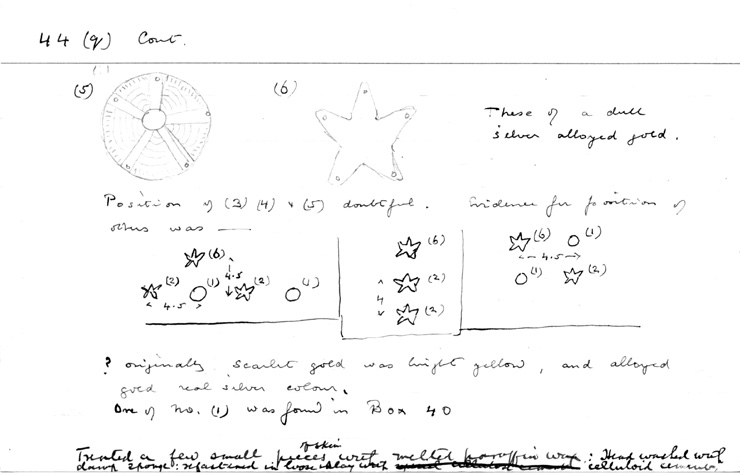 44 (q) Cont.
(5)
(6)
These of a dull
silver alloyed gold.
Position of (3) (4) & (5) doubtful. Evidence for position of
others was —
(6)
4.5
(2) (1) (2) (1)
4.5
(6)
(2)
4
(2)
(6) (1)
4.5
(1) (2)
? originally scarlet gold was bright yellow, and alloyed
gold real silver colour.
One of No. (1) was found in Box 40
of skin
Treated a few small pieces with melted paraffin wax: Head washed with
damp sponge: refastened in loose places with celluloid cement.